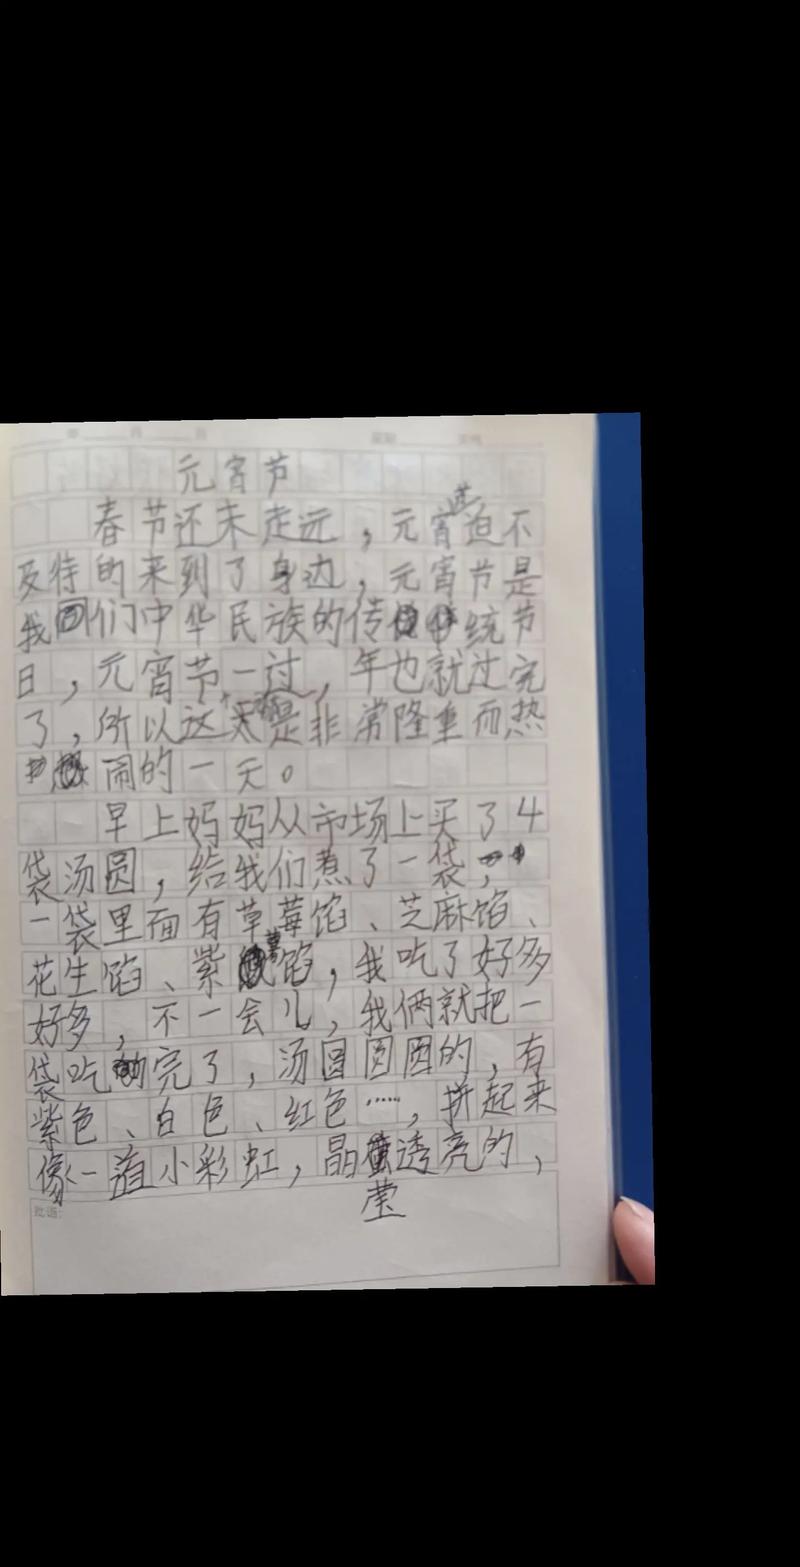 元宵节
春节还未走远，元宵节迫不
及待的来到了身边，元宵节是
我们中华民族的传统节
日，元宵节一过，年也就过完
了，所以这天是非常隆重而热
闹的一天。
早上妈妈从市场上买了4
袋汤圆，给我们煮了一袋，
一袋里面有草莓馅、芝麻馅、
花生馅、紫薯馅，我吃了好多
好多，不一会儿，我俩就把一
袋吃完了，汤圆圆圆的，有
紫色、白色、红色……，拼起来
像一道小彩虹，晶莹透亮的，
批语：